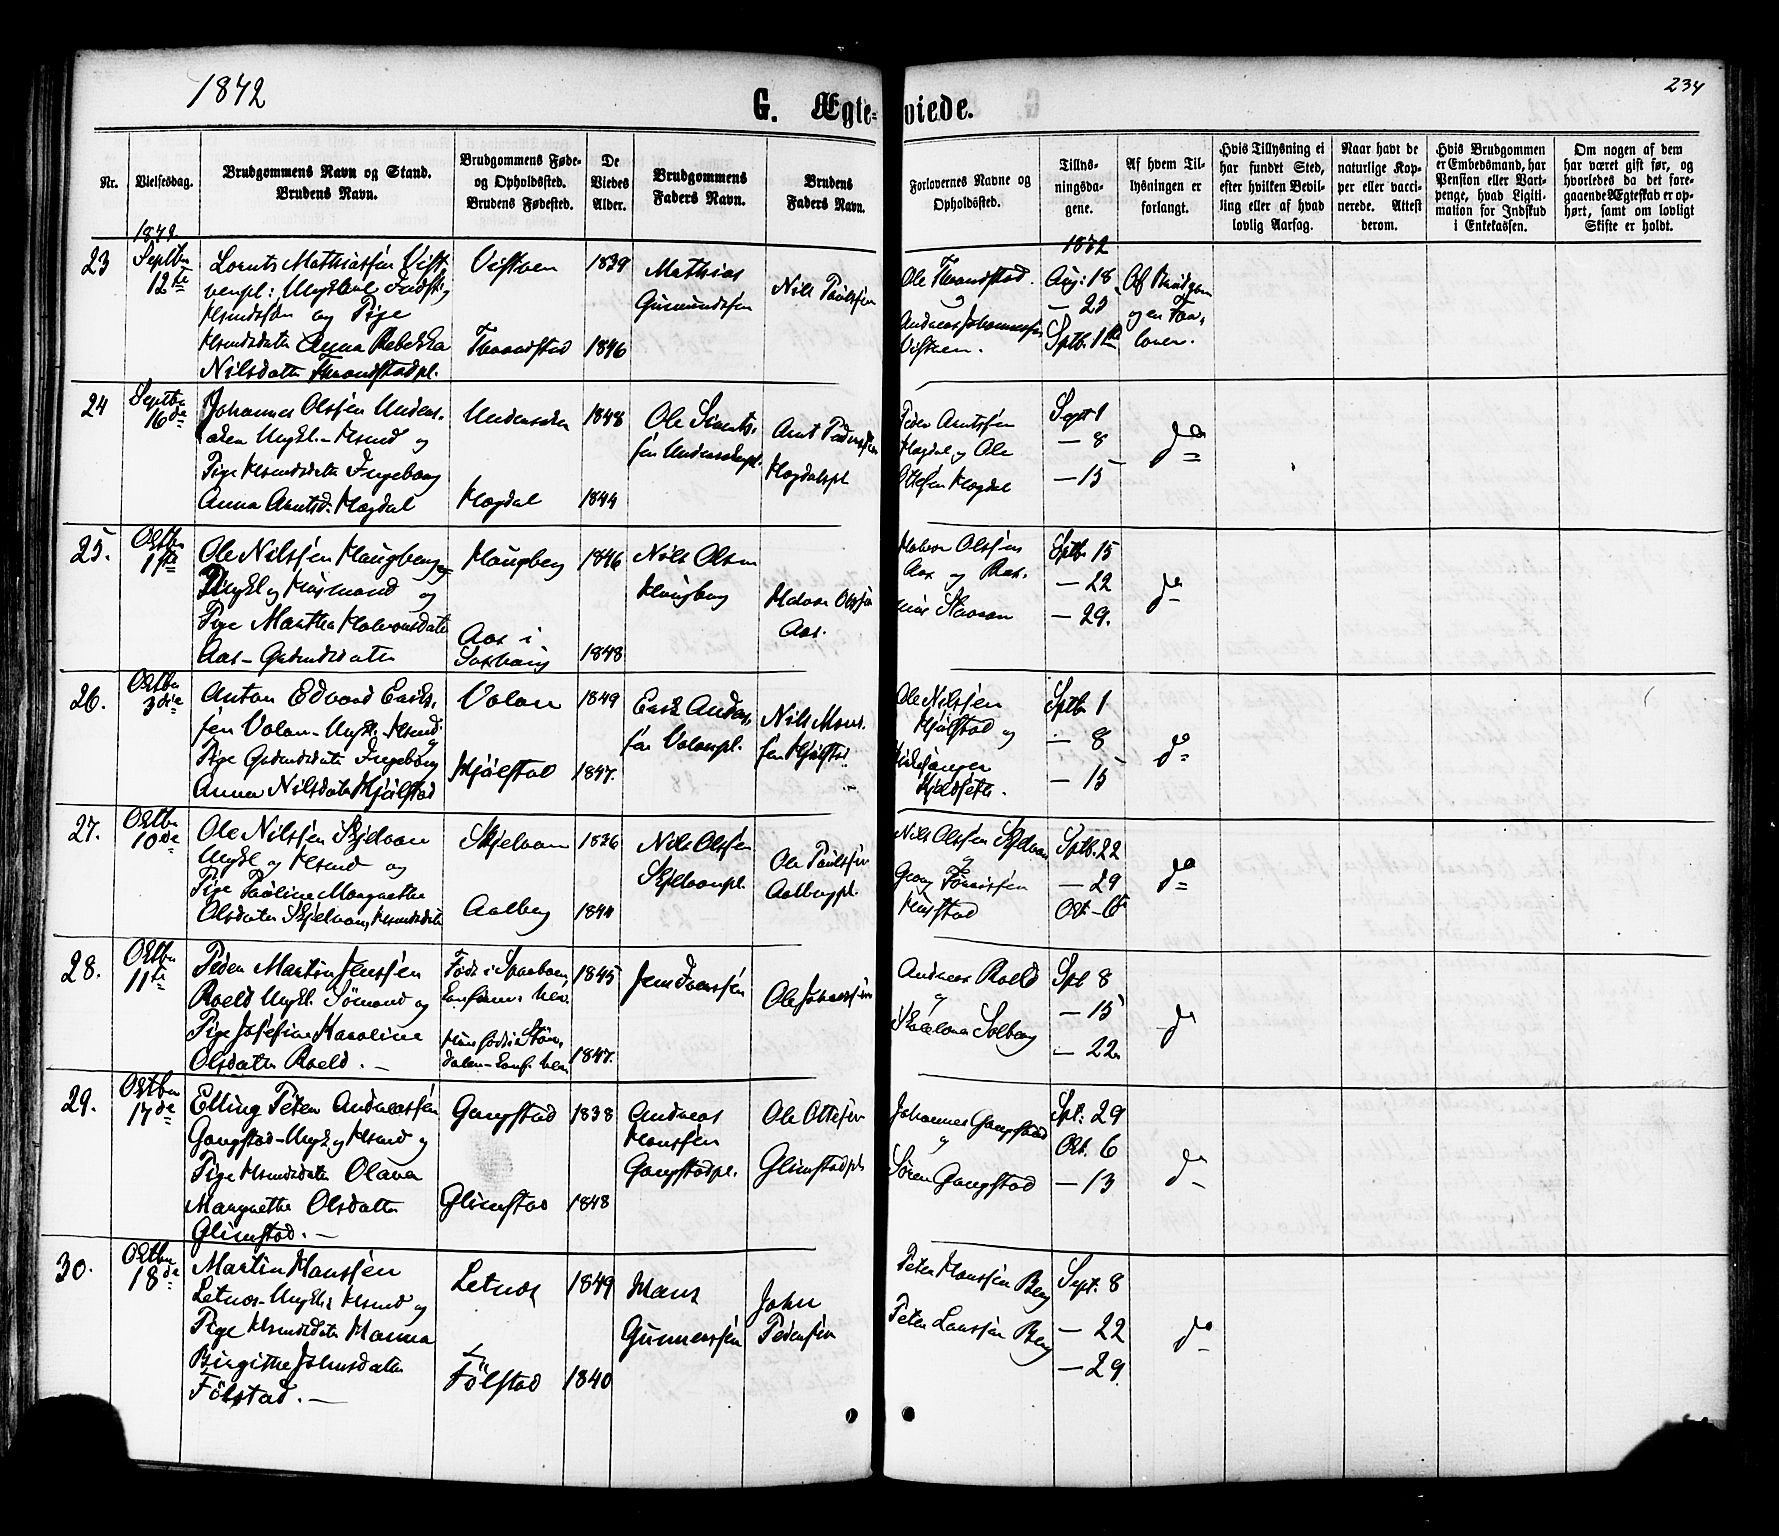 1872
234
G. Ægte-
viede.
Nr.
Vielsesdag.
Brudgommens Navn og Stand.
Brudens Navn.
Brudgommens Føde-
og Opholdssted.
Brudens Fødested.
De
Viedes
Alder.
Brudgommens
Faders Navn.
Brudens
Faders Navn.
Forlovernes Navne og
Opholdssted.
Tillys-
ningsda-
gene.
Af hvem Til-
lysningen er
forlangt.
Hvis Tillysning ei
har fundet Sted,
efter hvilken Bevil-
ling eller af hvad
lovlig Aarsag.
Naar havt de
naturlige Kop-
per eller vacci-
nerede. Attest
derom.
Hvis Brudgommen
er Embedsmand, har
Pension eller Vart-
penge, hvad Ligiti-
mation for Indskud
i Enkekassen.
Om nogen af dem
har været gift før, og
hvorledes da det fore-
gaaende Ægteskab er op-
hørt, samt om lovligt
Skifte er holdt.
1872
23
Septbr
12te
Lornts Mathiassen Vist
og Pige
Anna Rebekka
Nilsdatter
Vistven
1839
1846
Mathias
Gunmundssen
Nils Paulssen
1872
Ole
og
Andreas Johannessen
Vistven.
Aug: 18
— 25
Septb. 1ste
Af Brudgom
og en For,
lover.
24
Septbr
16de
Johannes Olssen
og
Pige Ingeborg
Anna Arntsd. Hogdal
Hogdal
1848
1844
Ole Siverts,
sen
Arnt Pederssen
Hogdalspl
Peder Arntssen
Hogdal og Ole
Ottesen Hogdal
Sept 1
— 8
— 15
do
25.
Octbr
1ste
Ole Nilssen Haugberg
Ungkl og Husmand og
Pige Martha Halvorsdatter
Aas – Grdmdsdatter
Haugberg
Aas i
1846
1848
Nils Olsen
Haugberg
Halvor Olssen
Aas.
Halvor Olssen
Aas og Ras,
Septb. 15
— 22
— 29.
do
26.
Octbr
3die
Anton Edvard Eriks,
sen Volan – Ungk. Hsmd
Pige Grdmdsdatter Ingeborg
Anna Nilsdatter Hjälstad
Volan
Hjälstad
1849
1847.
Erik Anders,
sen Volanpl.
Nils Mons,
sen Hjälstad
Ole Nilssen
Hjälstad og
Septb. 1
— 8
— 15
do
27.
Octbr
10de
Ole Nilssen Skjelvan
Ungkl og Hsmd og
Pige Pauline Margrethe
Olsdatter Skjelvan, Hsmdsdatter
Skjelvan
Aalberg
1836
1844
Nils Olssen
Skjelvanpl.
Ole Paulssen
Aalbergpl.
Nils Olssen Skjelvan
og
Septb. 22
— 29
Oct – 6
do
28.
Octbr
11te
Peder Martin Jenssen
Roeld Ungkl. Sømand og
Pige Josefine Karoline
Olsdatter Roeld. —
Født i
1845
1847.
Jens
Ole Johnssen
Andreas Roeld
og
Solberg
Spt 8
— 15
— 22
do
29.
Octbr
17de
Elling Peter Andreassen
Gangstad – Ungk og Hsmd og
Pige Hsmdsdatter Olava
Margrethe Olsdatter
Glimstad. —
Gangstad
Glimstad
1838
1848
Andreas
Hanssen
Gangstadpl.
Ole Ottesen
Glimstadpl
Johannes Gangstad
og
Søren Gangstad
Spt: 29
Oct. 6
— 13
do
30.
Octbr
18de
Martin Hanssen
Letnes – Ungkl Hsmd og
Pige Hsmdsdatter Hanna
Birgithe Johnsdatter
Fölstad. —
Letnes
Fölstad
1849
1840
Hans
Gunnerssen
John
Pederssen
Peter Hanssen Berg
Peter Larssen Berg
Sept. 8
— 22
— 29
do